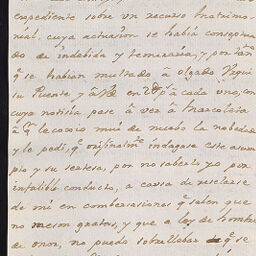 expediente sobre un recurso Matrimo-
nial, cuya actuacion se habia conseptua
do de indebida y temeraria, y por tan
q.e se habian multado á Olgado
su Puente y en 20 p.s á cada uno, con
cuya notisia pasé á ver á Marcoleta
á q.n le cosió mui de nuebo la nobedad
y le pedi, q.e originalm.te indagase este asum
pto y su serteza, por no saberlo yo por
infalible conducto, á causa de reselarse
de mi en combersasiones q.e saben que
no me son gratas, y que a ley de hombre
de onor, no puedo sobrellebar q.e se